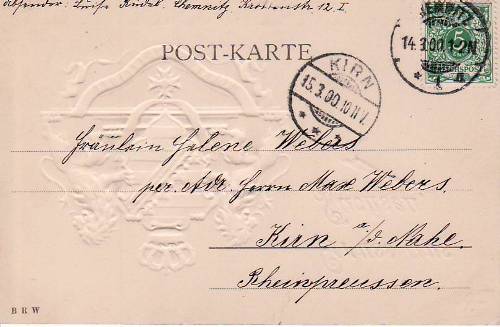 Absender: Luise Rudel. Chemnitz
12. I
POST-KARTE
CHEMNITZ
14.3.00.12N
* 1. n
5
REICHSPOST
KIRN
15.3.00.10 11 V.
* * 2
Fräulein Helene Webers
per. Adr. Herrn Max Webers.
Kirn a/d. Nahe.
Rheinpreussen.
B R W